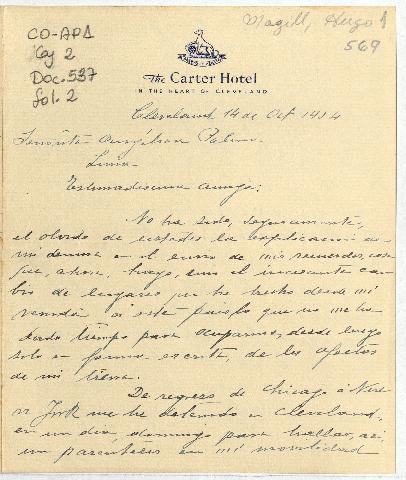 CO-AP1
Cj 2
Doc. 537
Fol. 2
Magill, Hugo
569
The Carter Hotel
IN THE HEART OF CLEVELAND
Cleveland 14 de Oct
Señorita Palma
Lima
Estimadísima amiga:
No ha sido, seguramente,
el olvido de ustedes la explicación de
mi demora en el envío de mis recuerdos,
que, ahora, hago, sino el incesante cam
bio de lugares que he hecho desde mi
venida a este país lo que no me ha
dado tiempo para ocuparme, desde luego
solo en forma escrita, de los afectos
de mi tierra.
De regreso de Chicago á New
York me he detenido en Cleveland,
en un día, domingo para hallar, así,
un paréntesis en mi movilidad